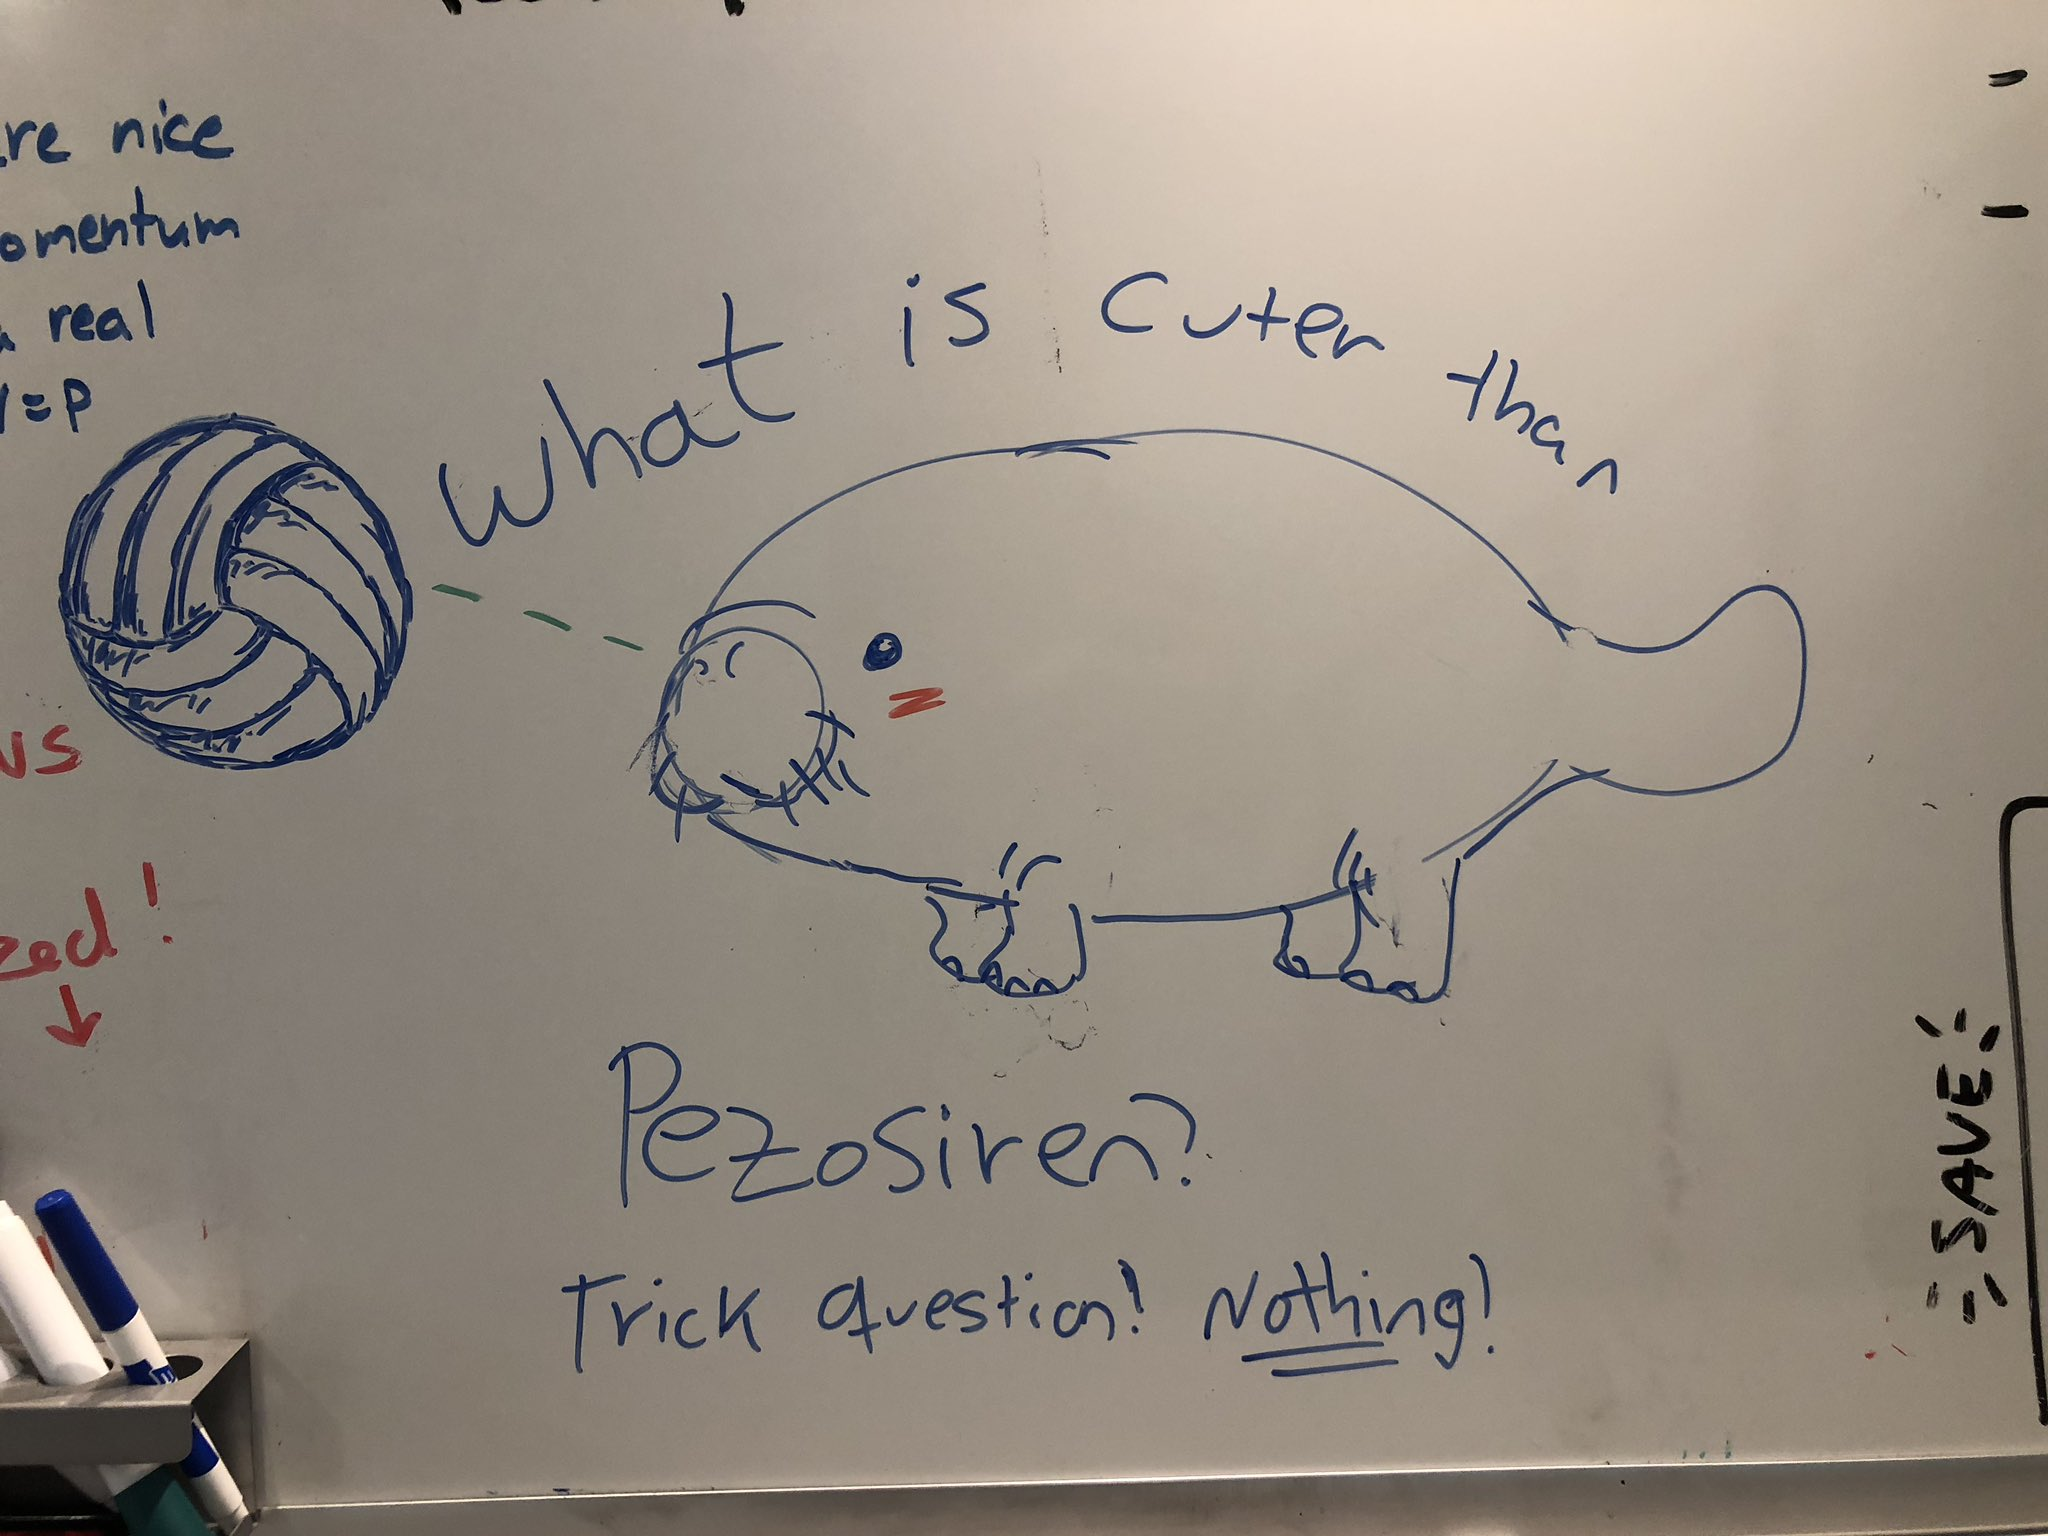 nice
real
=P
What is cuter than
Pezosiren?
Trick question! Nothing!
SAVE